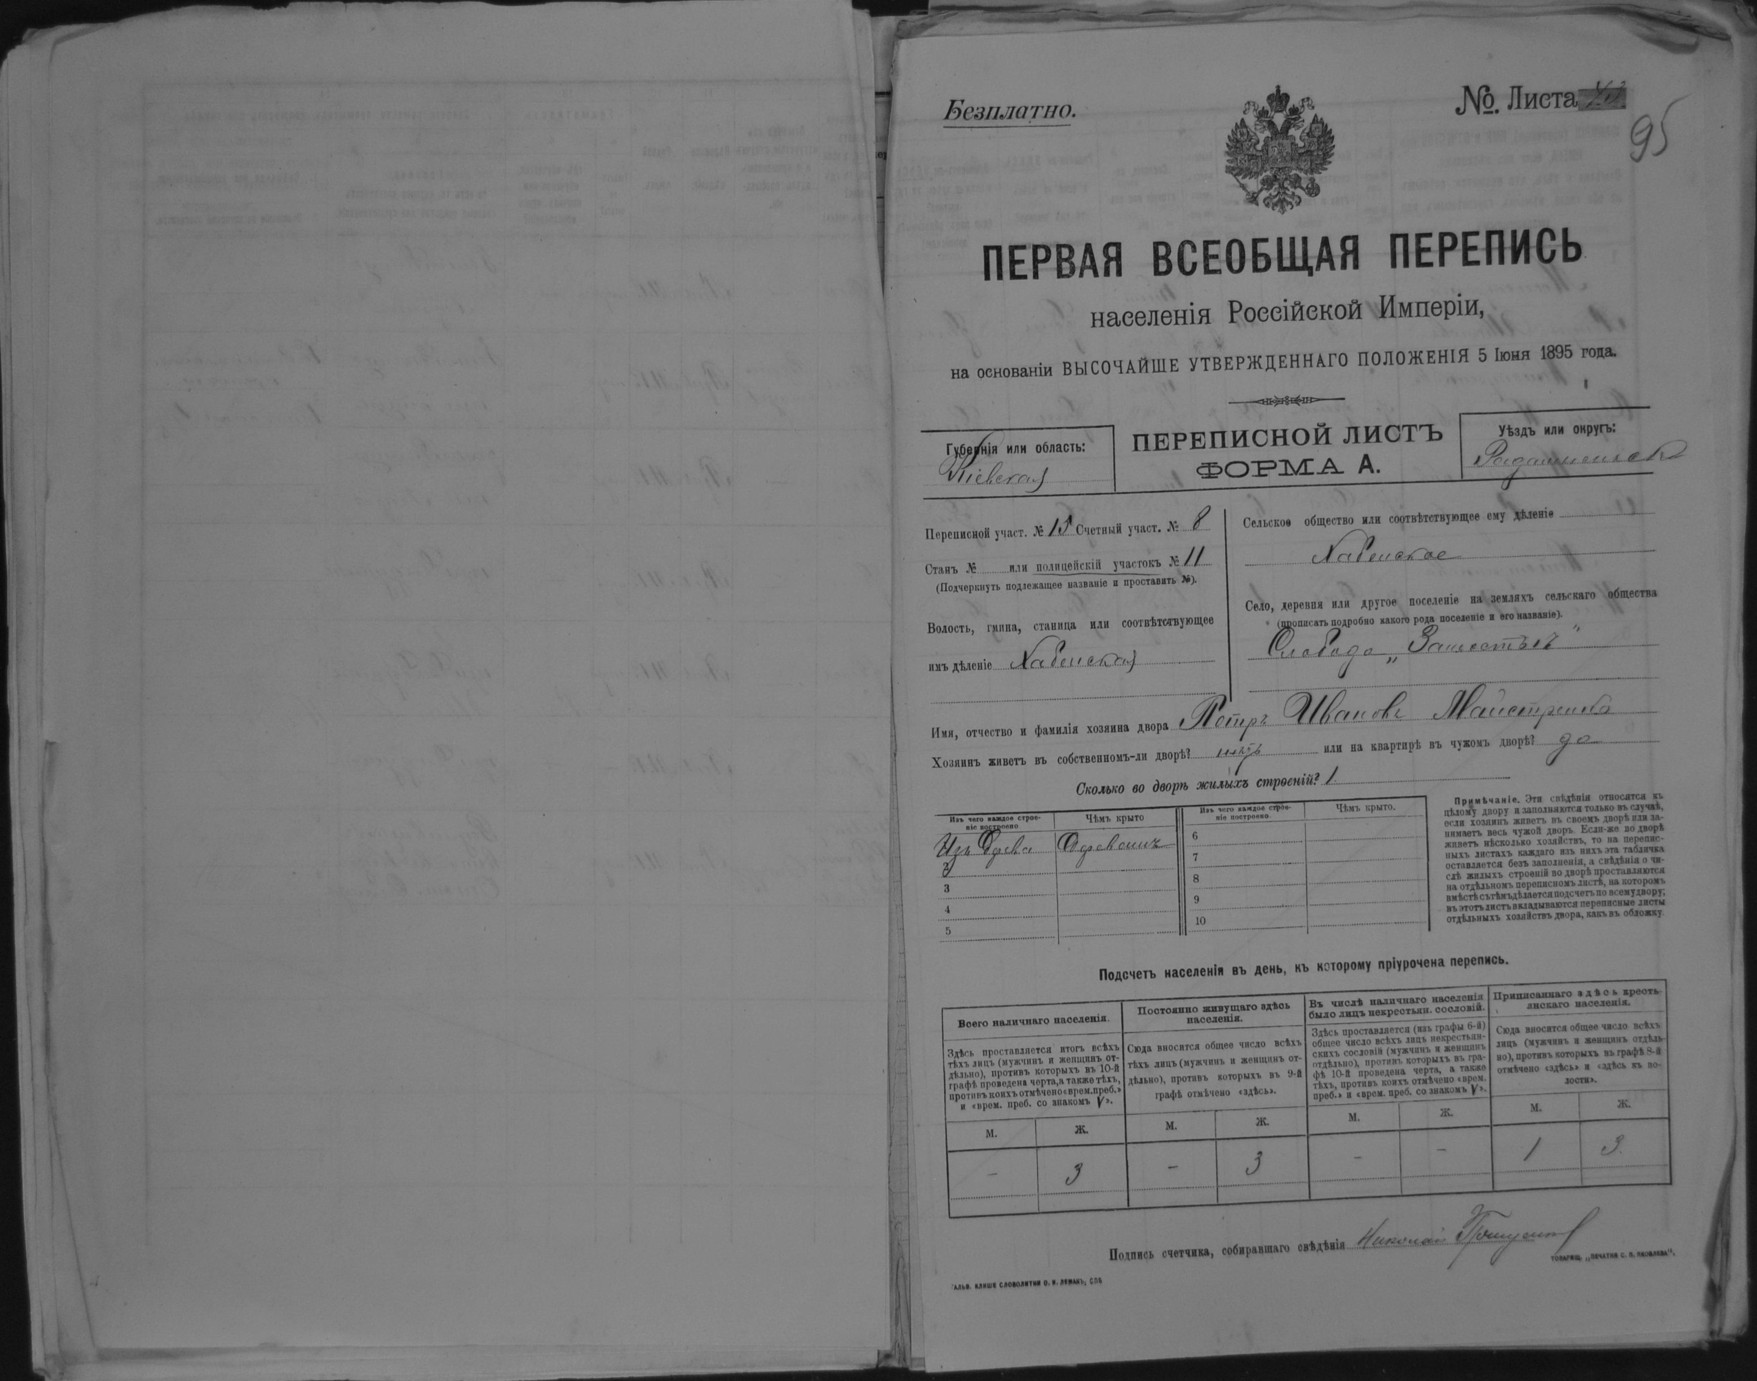 Безплатно.
№ Листа
95
ПЕРВАЯ ВСЕОБЩАЯ ПЕРЕПИСЬ
населенія Россійской Имперіи,
на основаніи ВЫСОЧАЙШЕ УТВЕРЖДЕННАГО ПОЛОЖЕНІЯ 5 Іюня 1895 года.
Губернія или область:
Кіевская
ПЕРЕПИСНОЙ ЛИСТЪ
ФОРМА А.
Уѣздъ или округъ:
Переписной участ. № 15 Счетный участ. № 8
Станъ № или полицейскій участокъ № 11
(Подчеркнуть подлежащее названіе и проставить №).
Волость, гмина, станица или соотвѣтствующее
имъ дѣленіе Хабенская
Сельское общество или соотвѣтствующее ему дѣленіе
Хабенское
Село, деревня или другое поселеніе на земляхъ сельскаго общества
(прописать подробно какого рода поселеніе и его названіе).
Слобода
Имя, отчество и фамилія хозяина двора Петръ Ивановъ Майстренко
Хозяинъ живетъ въ собственномъ-ли дворѣ? нѣтъ или на квартирѣ въ чужомъ дворѣ? да
Сколько во дворѣ жилыхъ строеній? 1
Изъ чего каждое строе-
ніе построено.
Чѣмъ крыто
Изъ чего каждое строе-
ніе построено.
Чѣмъ крыто.
Изъ
3
4
5
6
7
8
9
10
Примѣчаніе. Эти свѣдѣнія относятся къ
цѣлому двору и заполняются только въ случаѣ,
если хозяинъ живетъ въ своемъ дворѣ или за-
нимаетъ весь чужой дворъ. Если-же во дворѣ
живетъ нѣсколько хозяйствъ, то на перепис-
ныхъ листахъ каждаго изъ нихъ эта табличка
оставляется безъ заполненія, а свѣдѣнія о чи-
слѣ жилыхъ строеній во дворѣ проставляются
на отдѣльномъ переписномъ листѣ, на которомъ
вмѣстѣ съ тѣмъ дѣлается подсчетъ по всему двору;
въ этотъ листъ вкладываются переписные листы
отдѣльныхъ хозяйствъ двора, какъ въ обложку.
Подсчетъ населенія въ день, къ которому пріурочена перепись.
Всего наличнаго населенія.
Здѣсь проставляется итогъ всѣхъ
тѣхъ лицъ (мужчинъ и женщинъ от-
дѣльно), противъ которыхъ въ 10-й
графѣ проведена черта, а также тѣхъ,
противъ коихъ отмѣчено «врем. преб.»
и «врем. преб. со знакомъ V».
М. Ж.
– 3
Постоянно живущаго здѣсь
населенія.
Сюда вносится общее число всѣхъ
тѣхъ лицъ (мужчинъ и женщинъ от-
дѣльно), противъ которыхъ въ 9-й
графѣ отмѣчено «здѣсь».
М. Ж.
– 3
Въ числѣ наличнаго населенія
было лицъ некрестьян. сословій.
Здѣсь проставляется (изъ графы 6-й)
общее число всѣхъ лицъ некрестьян-
скихъ сословій (мужчинъ и женщинъ
отдѣльно), противъ которыхъ въ гра-
фѣ 10-й проведена черта, а также
тѣхъ, противъ коихъ отмѣчено «врем.
преб.» и «врем. преб. со знакомъ V».
М. Ж.
– –
Приписаннаго здѣсь кресть-
янскаго населенія.
Сюда вносится общее число всѣхъ
лицъ (мужчинъ и женщинъ отдѣль-
но), противъ которыхъ въ графѣ 8-й
отмѣчено «здѣсь» и «здѣсь въ во-
лости».
М. Ж.
1 3
Подпись счетчика, собиравшаго свѣдѣнія Николай